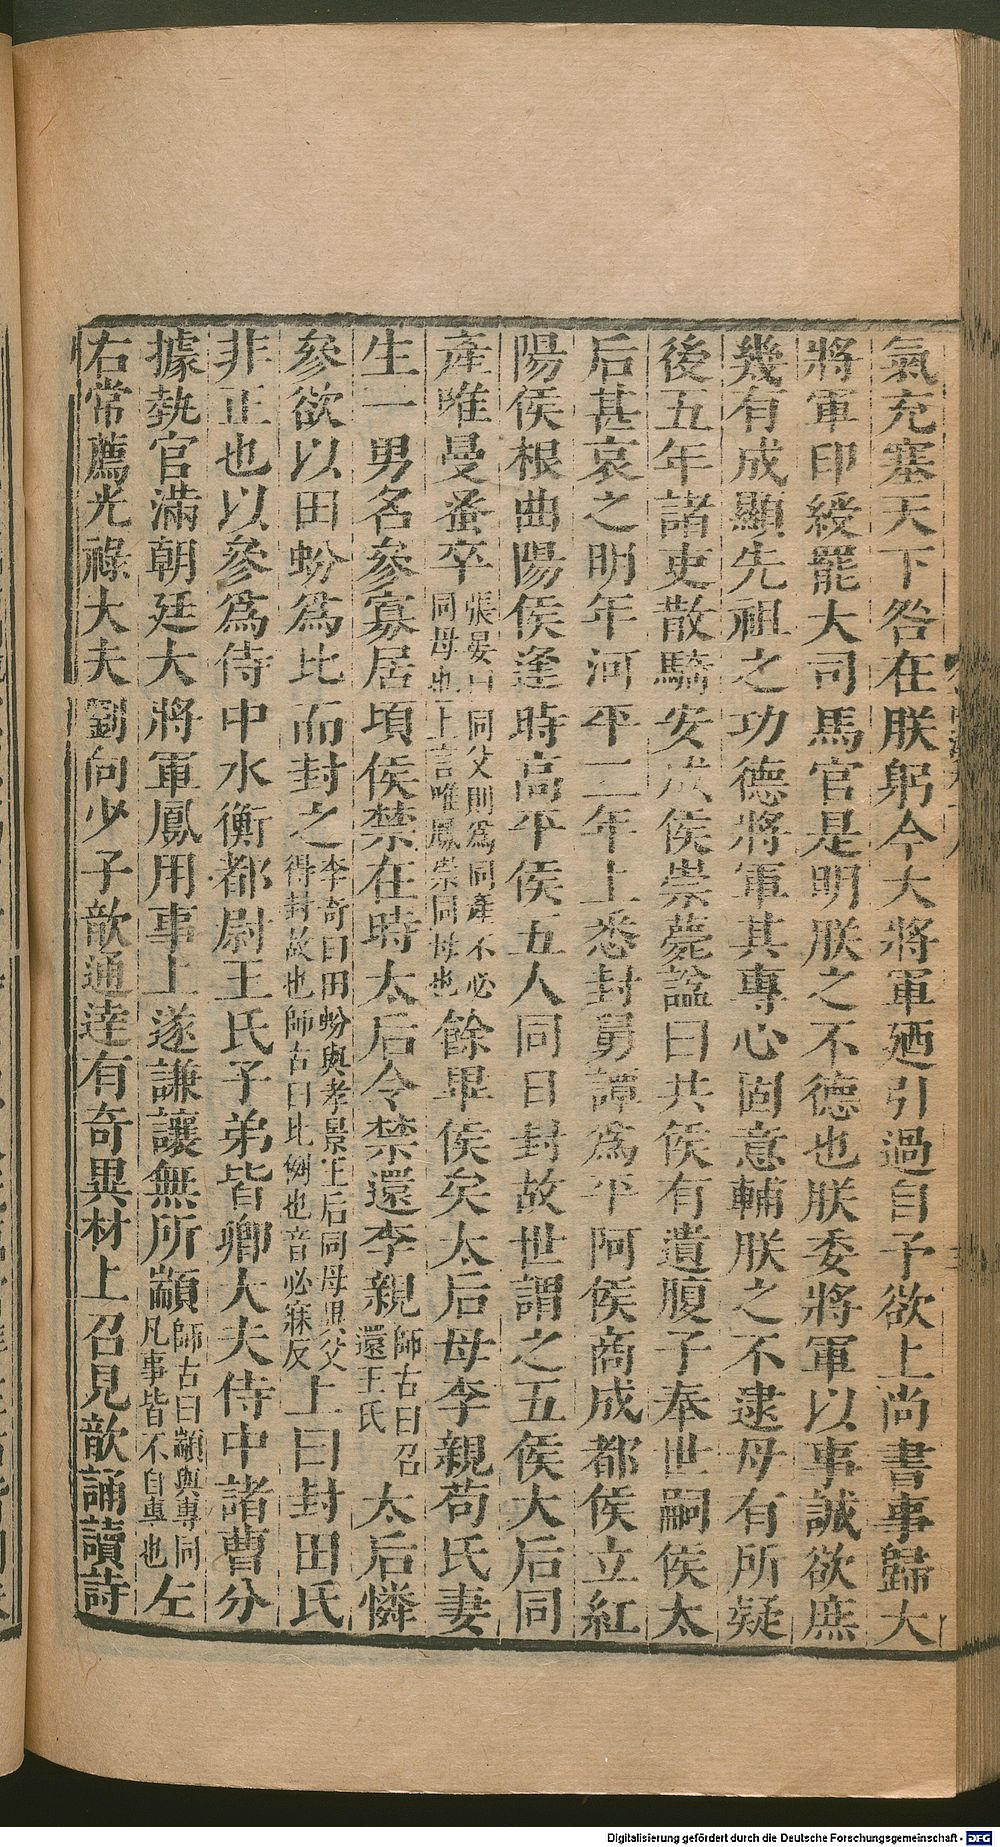 氣充塞天下咎在朕躬今大將軍廼引過自予欲上尚書事歸大
將軍印綬罷大司馬官是明朕之不德也朕委將軍以事誠欲庶
幾有成顯先祖之功德將軍其專心固意輔朕之不逮毋有所疑
後五年諸吏散騎安成侯崇薨諡曰共侯有遺腹子奉世嗣侯太
后甚哀之明年河平二年上悉封舅譚爲平阿侯商成都侯立紅
陽侯根曲陽侯逢時高平侯五人同日封故世謂之五侯太后同
產唯曼蚤卒張晏曰同父則爲同產不必同母也上言唯鳳崇同母也餘畢侯矣太后母李親苟氏妻
生一男名參寡居頃侯禁在時太后令禁還李親師古曰召還王氏太后憐
參欲以田蚡爲比而封之李奇曰田蚡與孝景王后同母異父得封故也師古曰比例也音必寐反上曰封田氏
非正也以參爲侍中水衡都尉王氏子弟皆卿大夫侍中諸曹分
據執官滿朝廷大將軍鳳用事上遂謙讓無所顓師古曰顓與專同凡事皆不自專也左
右常薦光祿大夫劉向少子歆通達有奇異材上召見歆誦讀詩
Digitalisierung gefördert durch die Deutsche Forschungsgemeinschaft - DFG